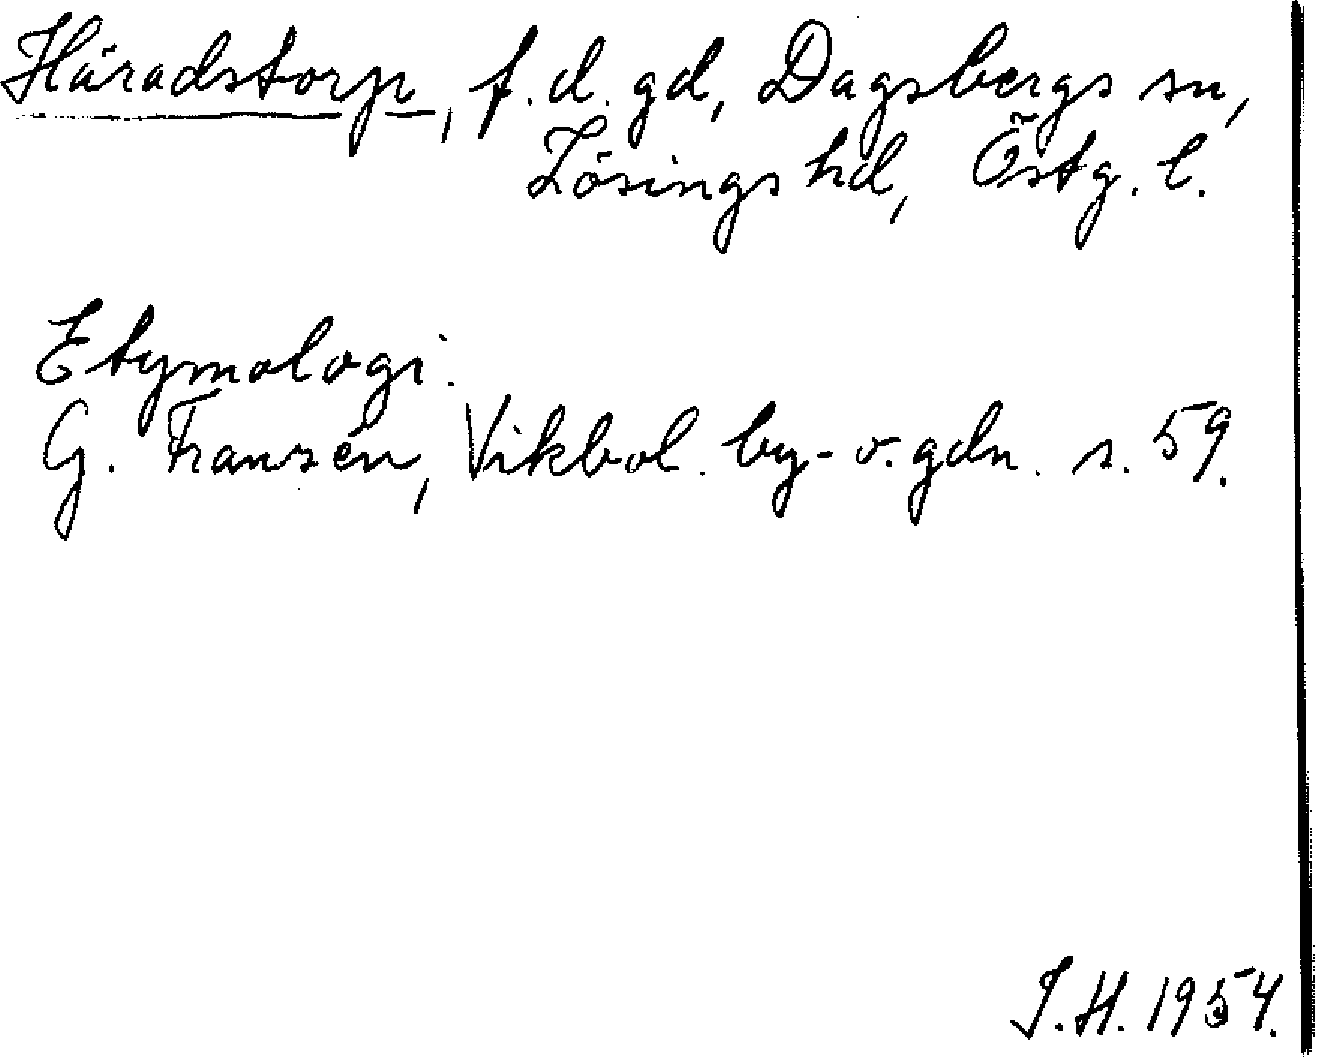 Häradstorp, f.d. gd, Dagsbergs sn,
Lösings hd, Östg. l.
Etymologi.
G. Franzén, Vikbol. by- o. gdn. s. 59.
I.H. 1954.